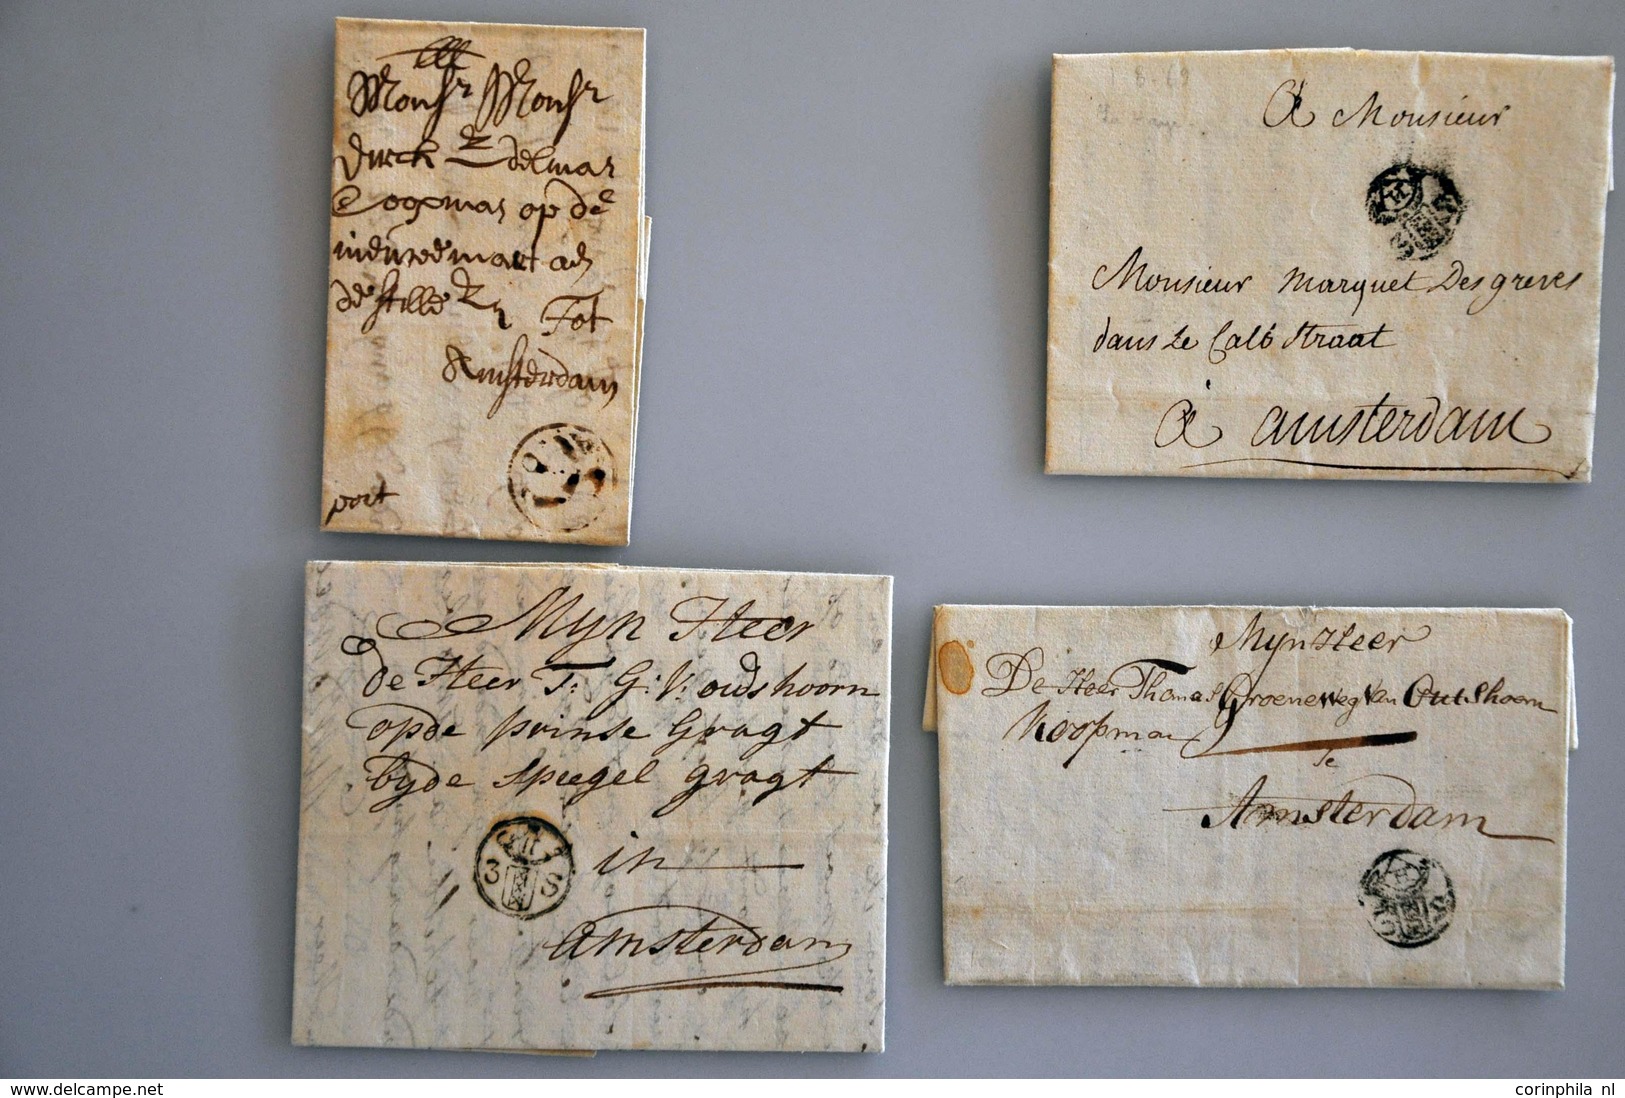 Monsr Monsr
Dirck Edelmar
Coopman op de
nieuwemart aen
de stille Zy Tot
Amsterdam
port
A Monsieur
Monsieur Marquet Desgreves
dans Le Calbstraat
A amsterdam
Mijn Heer
de Heer T: G: V: oudshoorn
opde prinse Gragt
byde spiegel gragt
in
Amsterdam
3 S
Mijn Heer
De Heer Thomas Groeneweg van Outshoorn
Koopman
Te
Amsterdam
3 S
www.delcampe.net
corinphila nl